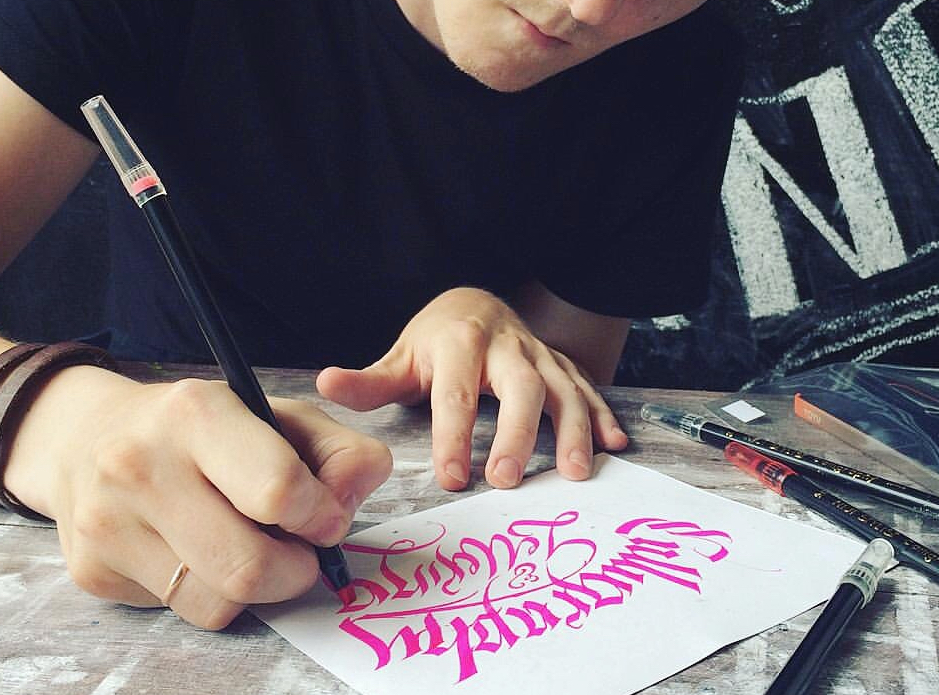 Calligraphy
&
Lettering